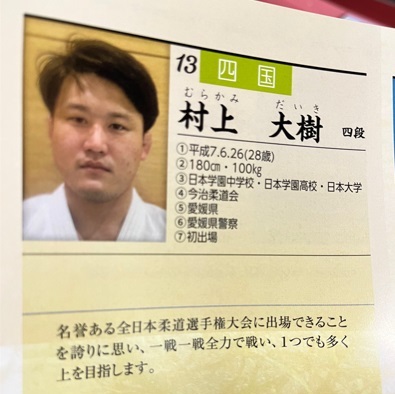 13 四国
むらかみ だいき
村上 大樹 四段
①平成7.6.26(28歳)
②180cm・100kg
③日本学園中学校・日本学園高校・日本大学
④今治柔道会
⑤愛媛県
⑥愛媛県警察
⑦初出場
名誉ある全日本柔道選手権大会に出場できること
を誇りに思い、一戦一戦全力で戦い、1つでも多く
上を目指します。